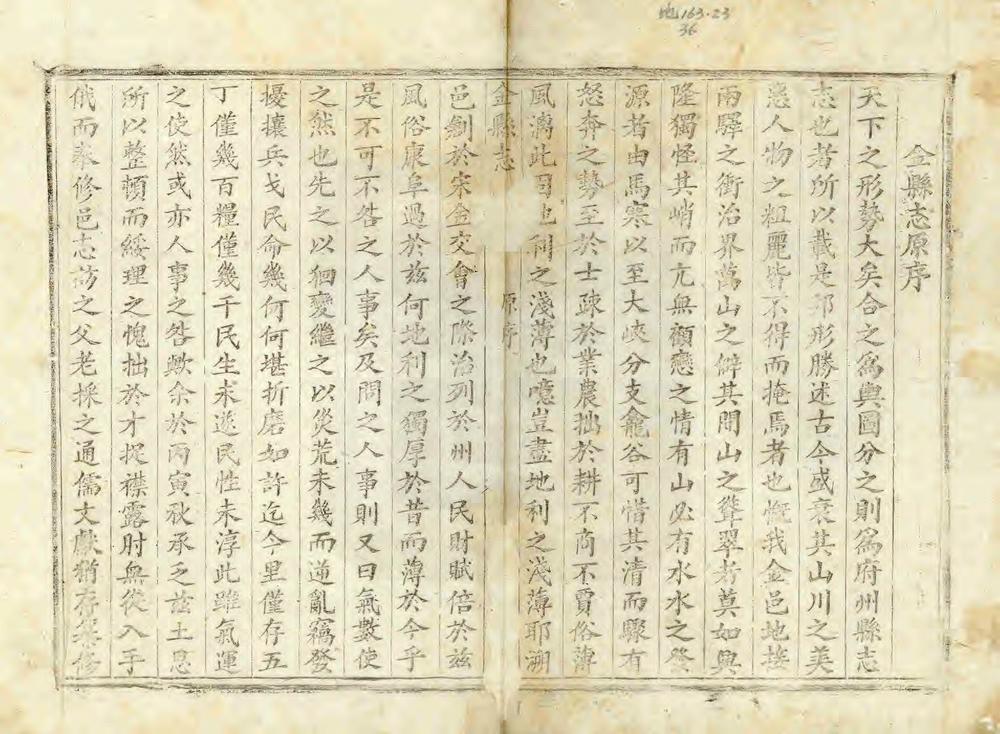 地163.23
36
金縣志原序
天下之形勢大矣合之爲輿圖分之則爲府州縣志
志也者所以載是邦形勝述古今盛衰其山川之美
惡人物之粗麗皆不得而掩焉者也慨我金邑地接
兩驛之衝治界萬山之僻其間山之聳翠者莫如興
隆獨怪其峭而亢無顧戀之情有山必有水水之發
源者由馬寒以至大峽分支龕谷可惜其清而驟有
怒奔之勢至於士疎於業農拙於耕不商不賈俗薄
風漓此固地利之淺薄也噫豈盡地利之淺薄耶溯
金縣志
原序
邑剏於宋金交會之際治列於州人民財賦倍於茲
風俗康阜過於茲何地利之獨厚於昔而薄於今乎
是不可不咎之人事矣及問之人事則又曰氣數使
之然也先之以徊變繼之以災荒未幾而逆亂竊發
擾攘兵戈民命幾何何堪折磨如許迄今里僅存五
丁僅幾百糧僅幾千民生未遂民性未淳此雖氣運
之使然或亦人事之咎歟余於丙寅秋承乏茲土思
所以整頓而綏理之愧拙於才捉襟露肘無從入手
俄而奉修邑志諮之父老採之通儒文獻猶存纂修